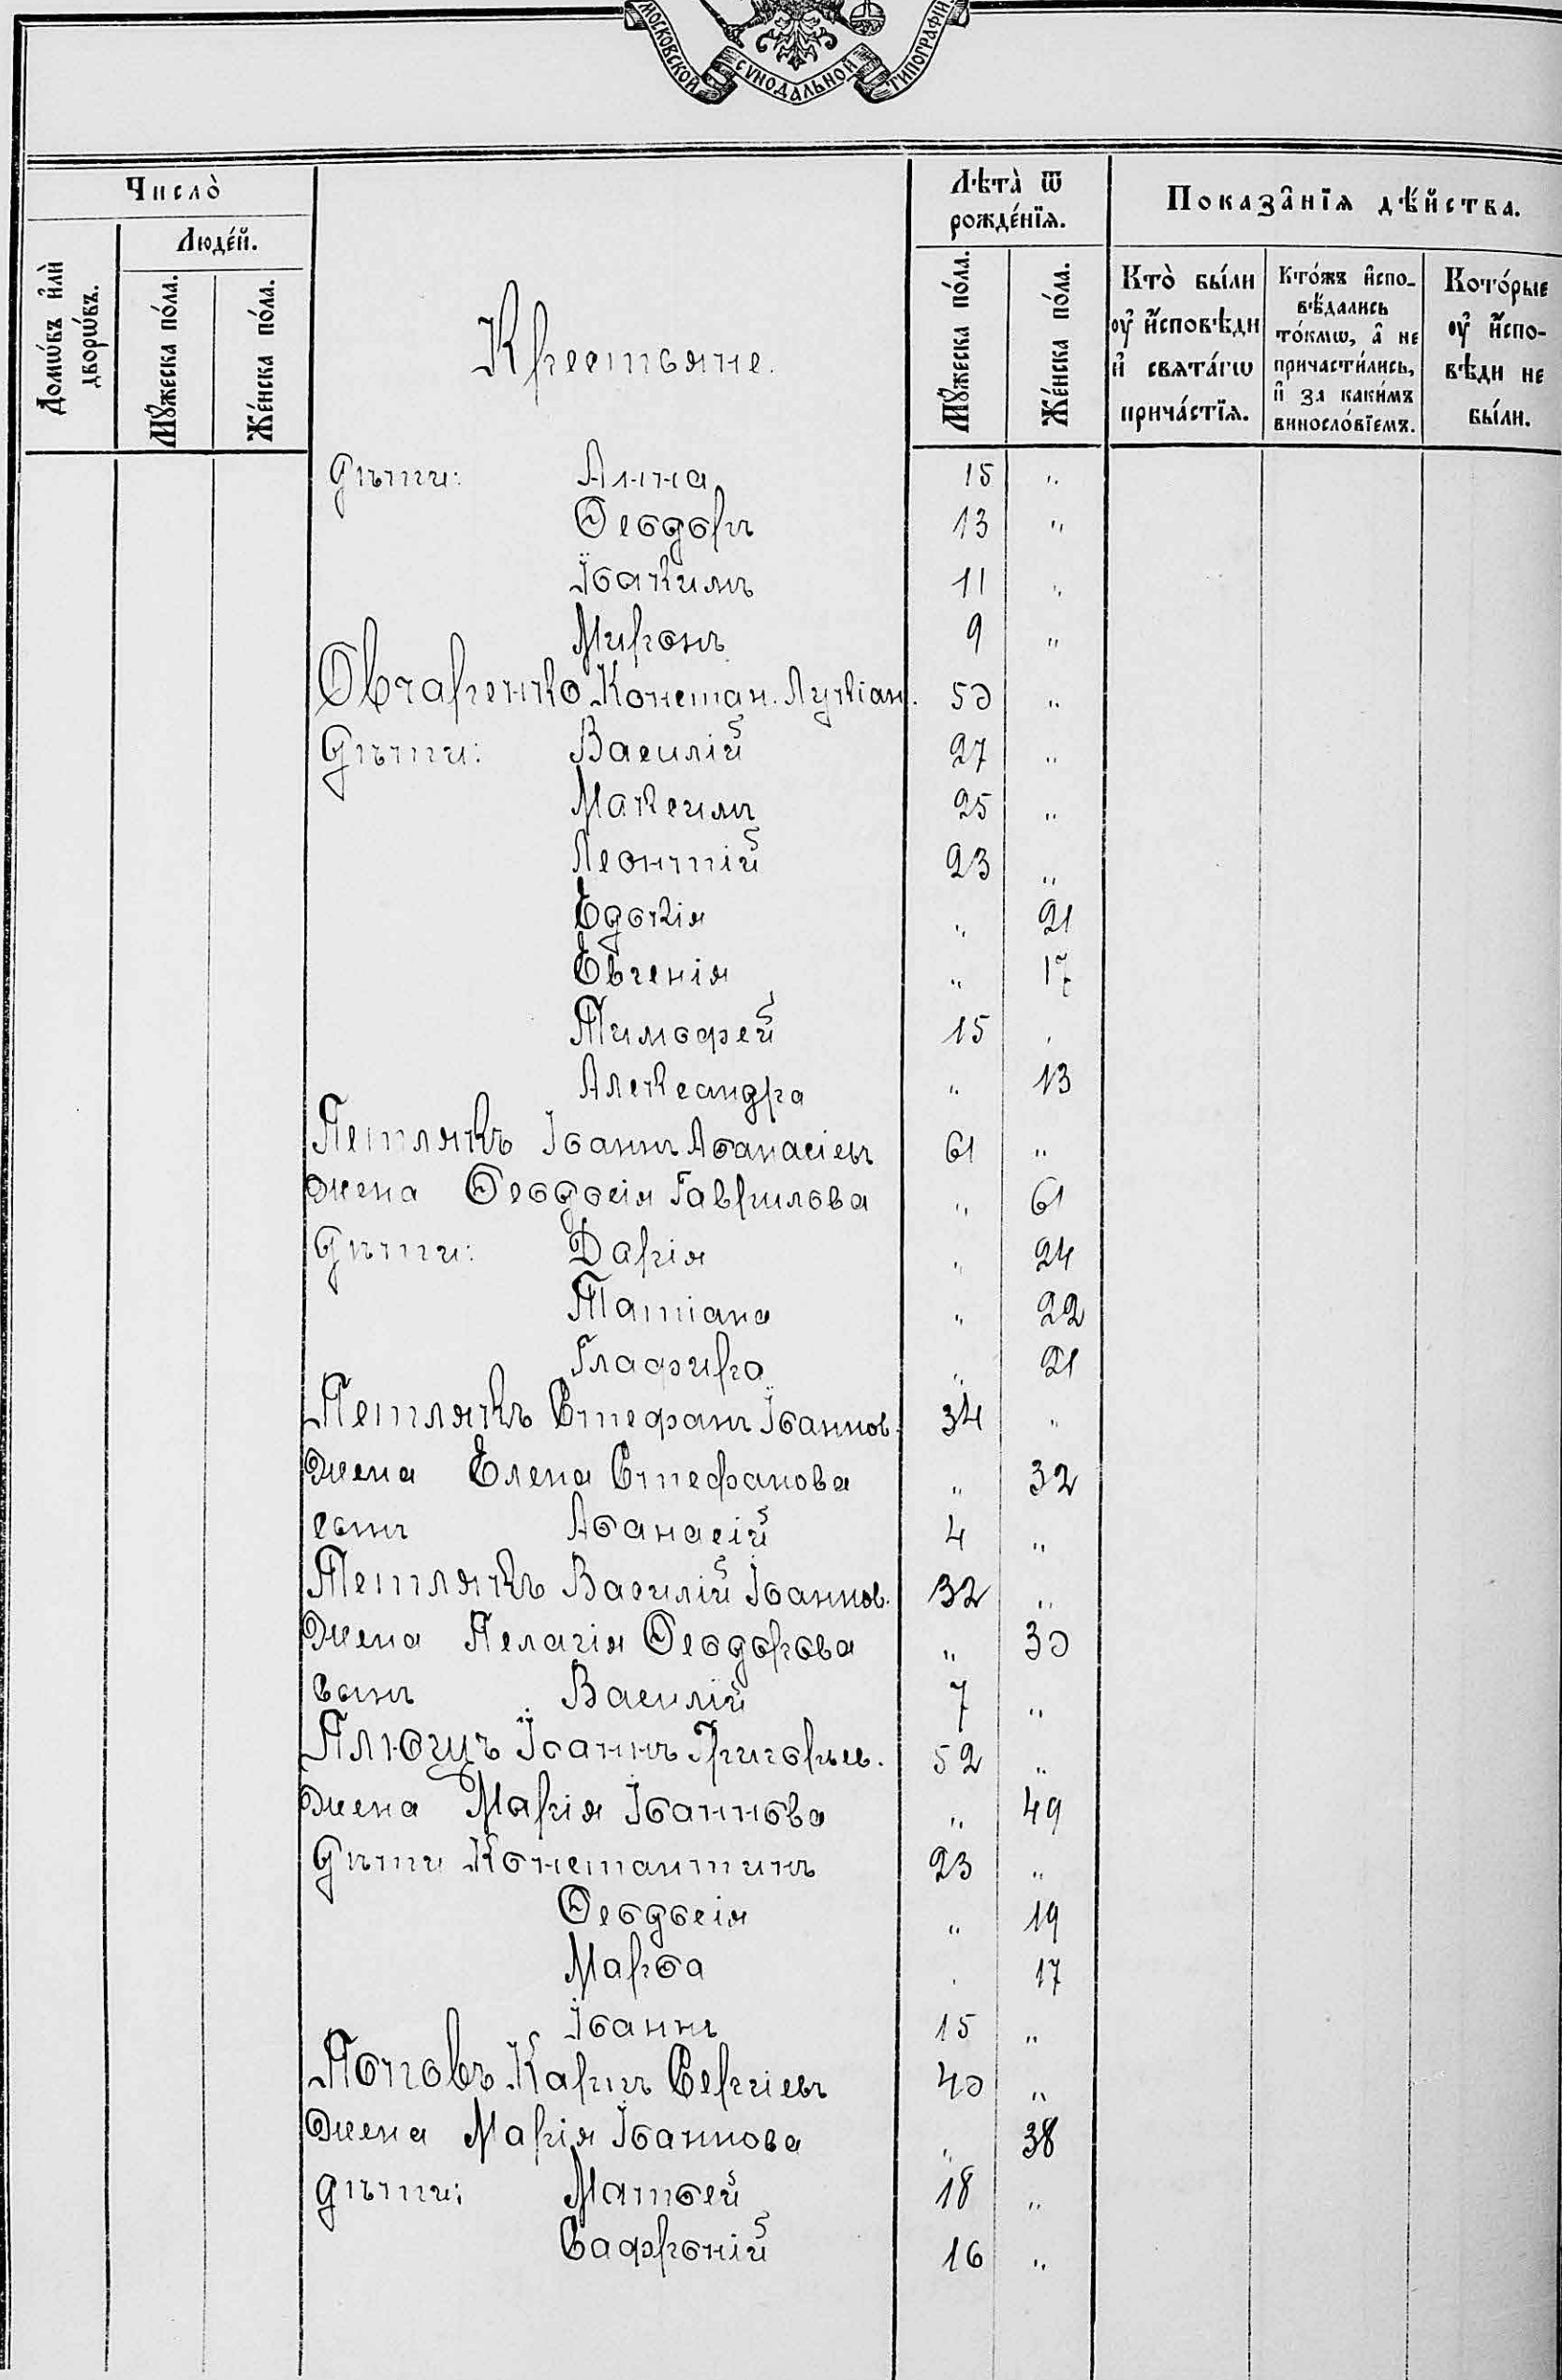 МОСКОВСКОЙ СѴНОДАЛЬНОЙ ТИПОГРАФІИ
Число̀
Людéй.
Домѡ́въ и҆лѝ дворѡ́въ.
Мꙋ́жеска по́ла.
Же́нска по́ла.
Крестьяне.
Лѣта̀ ѿ рожде́нїѧ.
Мꙋ́жеска по́ла.
Же́нска по́ла.
Показа̑нїѧ дѣ́йства.
Кто̀ бы́ли оу҆ и҆́сповѣди и҆ свѧта́гѡ прича́стїѧ.
Кто́жъ и҆спо-вѣ́дались то́кмѡ, а҆ не причасти́лись, и҆ за каки́мъ виносло́вїемъ.
Кото́рые оу҆ и҆́спо-вѣди не бы́ли.
Дѣти: Анна 15 "
Ѳеодоръ 13 "
Іоакимъ 11 "
Миронъ 9 "
Овчаренко Констан. Лукіан. 50 "
Дѣти: Василій 27 "
Максимъ 25 "
Леонтій 23 "
Едокія " 21
Евгенія " 17
Тимофей 15 "
Александра " 13
Петлякъ Іоаннъ Аѳанасіевъ 61 "
жена Ѳеодосія Гаврилова " 61
Дѣти: Дарія " 24
Татіана " 22
Глафира " 21
Петлякъ Стефанъ Іоаннов. 34 "
жена Елена Стефанова " 32
сынъ Аѳанасій 4 "
Петлякъ Василій Іоаннов. 32 "
жена Пелагія Ѳеодорова " 30
сынъ Василій 7 "
Плюгцъ Іоаннъ Григорьев. 52 "
жена Марія Іоаннова " 49
Дѣти Константинъ 23 "
Ѳеодосія " 19
Марѳа " 17
Іоаннъ 15 "
Поповъ Карпъ Сергіевъ 40 "
жена Марія Іоаннова " 38
дѣти: Матѳей 18 "
Сафроній 16 "